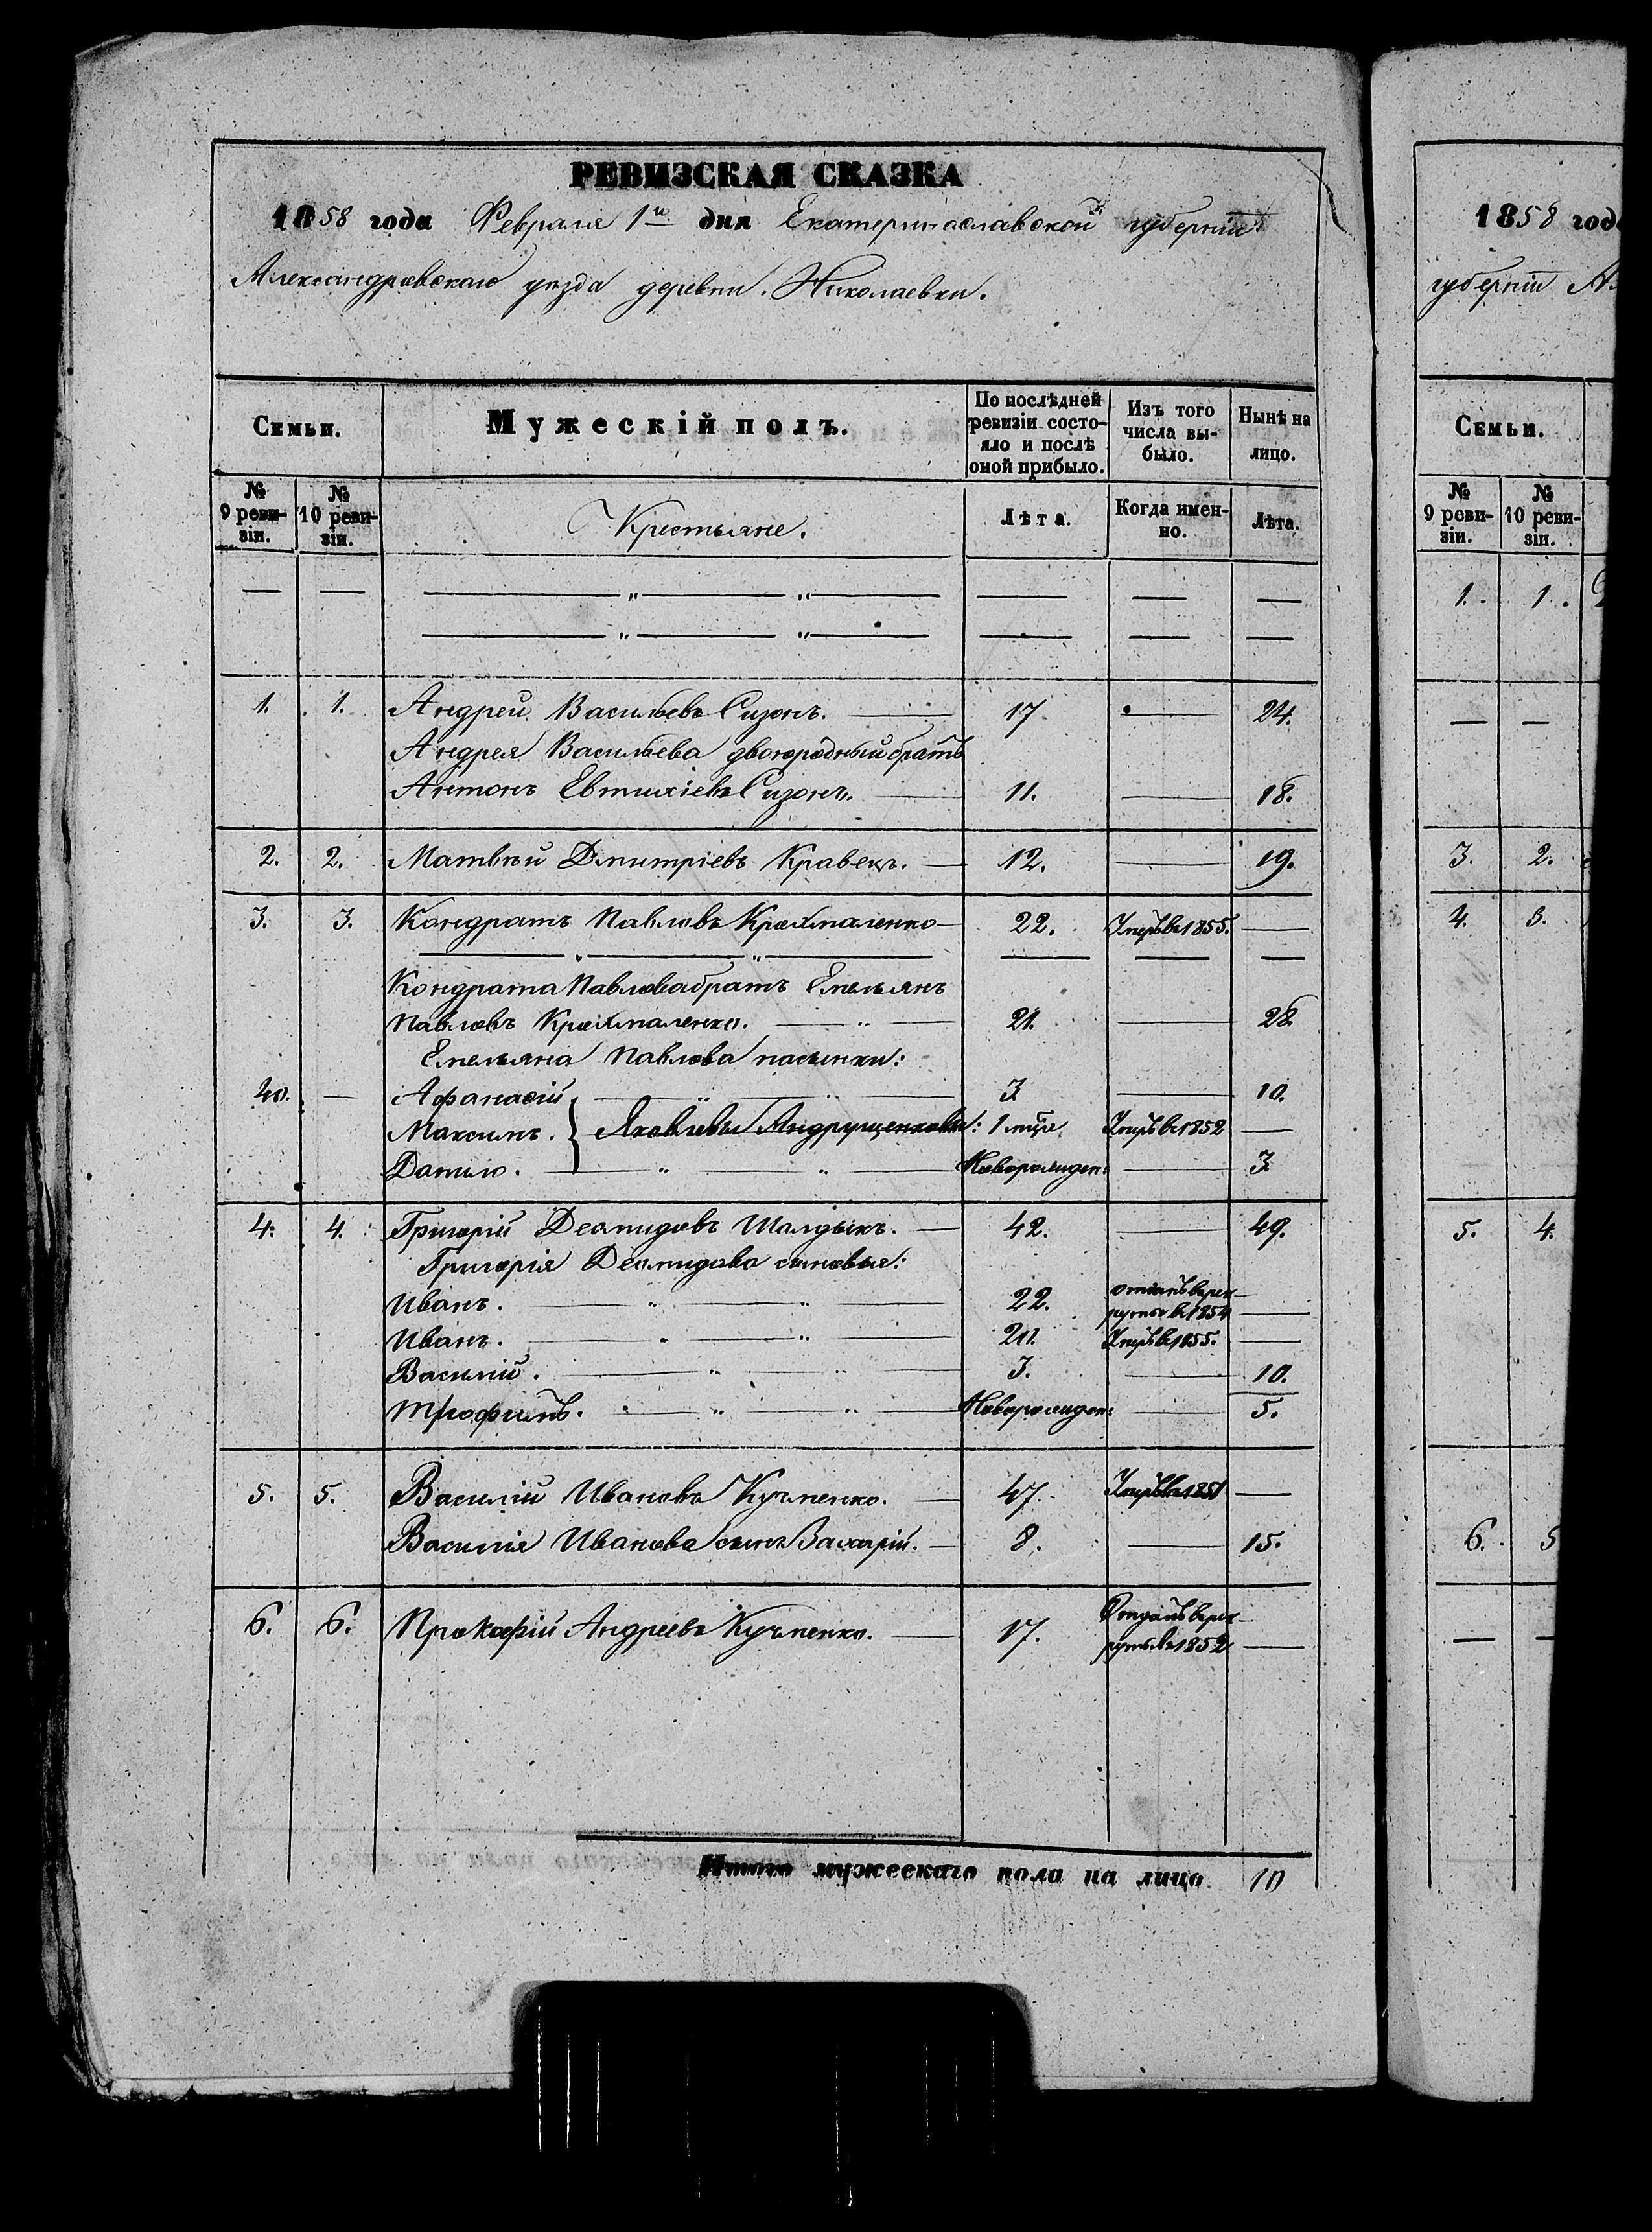 РЕВИЗСКАЯ СКАЗКА
1858 года Февраля 1го дня Екатеринославской губерніи
Александровскаго уѣзда деревни Николаевки.
Семьи. Мужескій полъ. По послѣдней ревизіи состояло и послѣ оной прибыло. Изъ того числа выбыло. Нынѣ на лицо.
№ 9 ревизіи. № 10 ревизіи. Крестьяне. Лѣта. Когда именно. Лѣта.
1. 1. Андрей Васильевъ Сизонъ. 17 24.
Андрея Васильева двоюродный братъ
Антонъ Евтихіевъ Сизонъ. 11. 18.
2. 2. Матвѣй Дмитріевъ Кравецъ. 12. 19.
3. 3. Кондратъ Павловъ Крохмаленко 22. Умеръ въ 1855.
Кондрата Павлова братъ Емельянъ
Павловъ Крохмаленко. 21. 28
Емельяна Павлова пасынки:
40. Афанасій 3 10.
Максимъ. } Яковлевы Андрущенковы: 1 мѣся. Умеръ въ 1852
Данило. Новорожден: 3
4. 4. Григорій Деомидовъ Шалдыкъ. 42. 49.
Григорія Деомидова сыновья:
Иванъ. 22. отданъ въ рекруты въ 1854
Иванъ. 20. Умеръ въ 1855.
Василій. 3. 10.
Трофимъ. Новорожден: 5.
5. 5. Василій Ивановъ Кучменко. 47. Умеръ въ 1851
Василія Иванова сынъ Захарій. 8. 15.
6. 6. Прокофій Андреевъ Кучменко. 17. Отданъ въ рекруты въ 1852
Итого мужескаго пола на лицо 10
1858 года
губерніи
Семьи.
№ 9 ревизіи. № 10 ревизіи.
1. 1.
3. 2.
4. 3.
5. 4.
6. 5